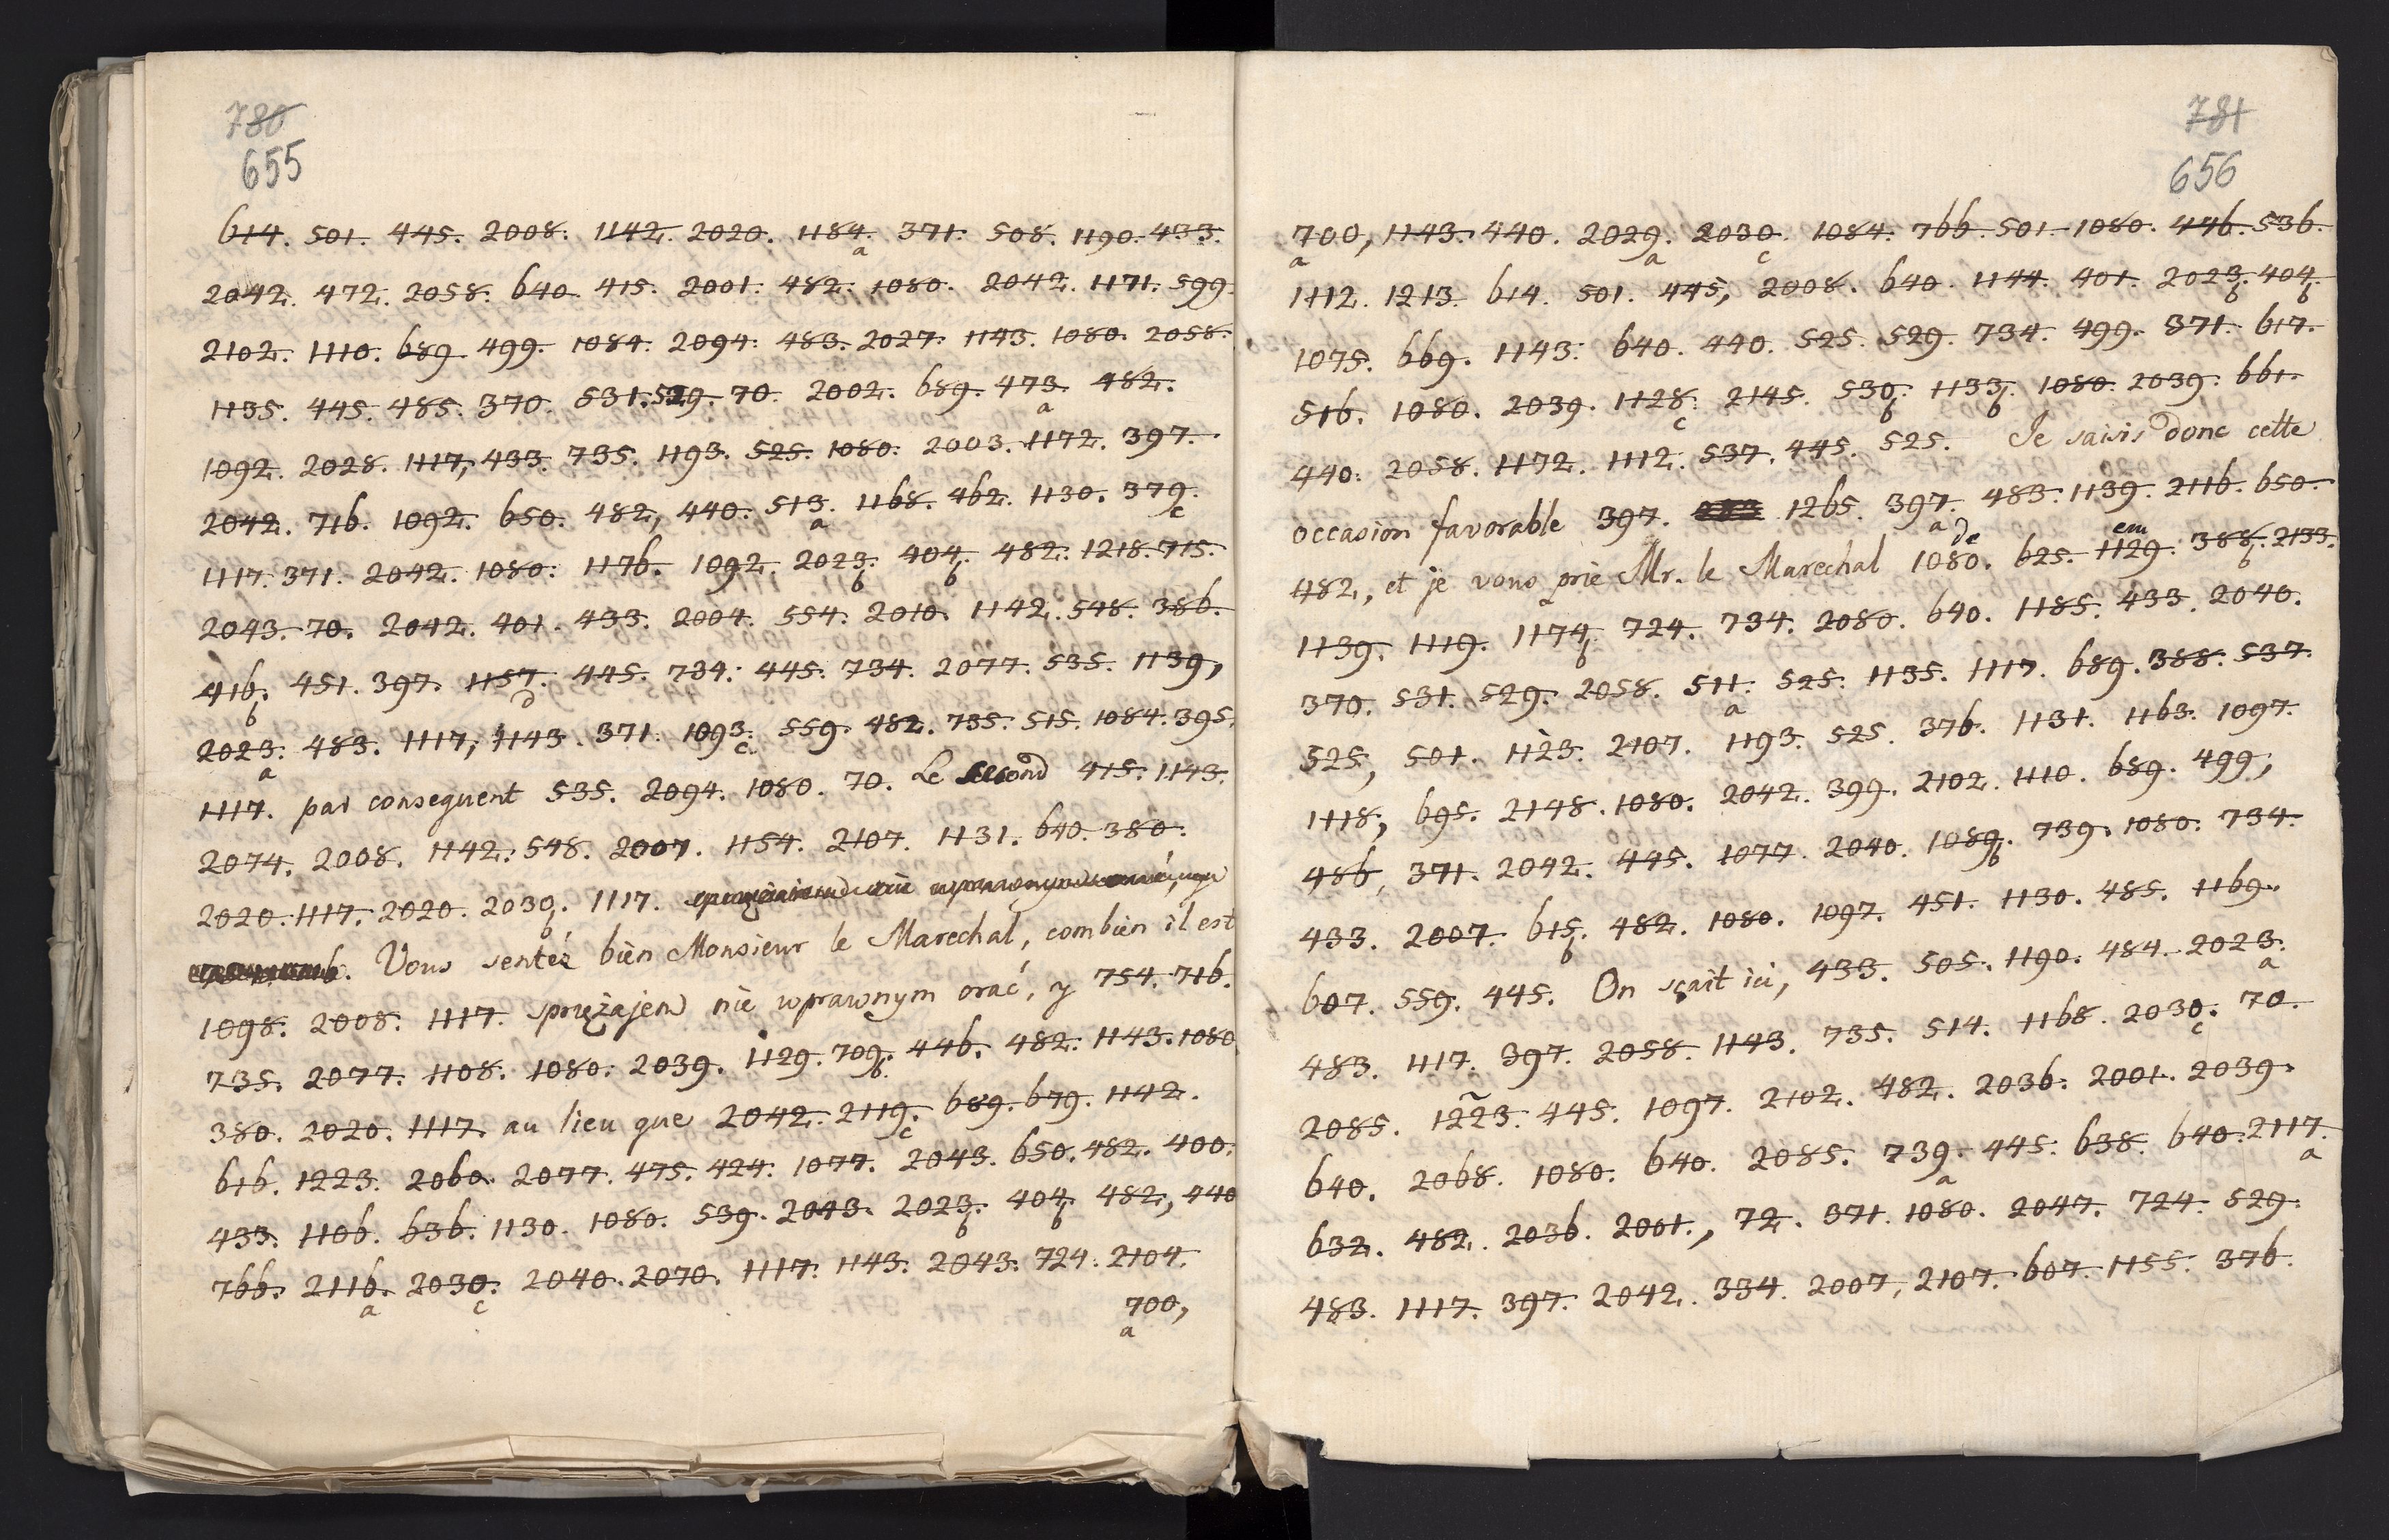 780
655
614. 501. 445. 2008. 1142. 2020. 1184. 371. 508. 1190. 433.
a
2042. 472. 2058. 640. 415. 2001. 482. 1080. 2042. 1171. 599.
2102. 1110. 689. 499. 1084. 2094. 483. 2027. 1143. 1080. 2058.
1135. 445. 485. 370. 531. 529. 70. 2002. 689. 473. 482.
a
1092. 2028. 1117, 433. 735. 1193. 525. 1080. 2003. 1172. 397.
2042. 716. 1092. 650. 482, 440. 513. 1168. 462. 1130. 379.
a c
1117. 371. 2042. 1080. 1176. 1092. 2023. 404. 482. 1218. 715.
b b
2043. 70. 2042. 401. 433. 2004. 554. 2010. 1142. 548. 386.
416. 451. 397. 1157. 445. 734. 445. 734. 2077. 535. 1139,
b d
2023. 483. 1117, 1143. 371. 1093. 559. 482. 735. 515. 1084. 395.
a c
1117. par consequent 535. 2094. 1080. 70. Le second 415. 1143.
2074. 2008. 1142. 548. 2007. 1154. 2107. 1131. 640. 380.
2020. 1117. 2020. 2030. 1117.
b
Vous sentéz bien Monsieur le Marechal, combien il est
1098. 2008. 1117. sprężajem nie wprawnym orać, y 754. 716.
735. 2077. 1108. 1080. 2039. 1129. 709. 446. 482. 1143. 1080
b
380. 2020. 1117. au lieu que 2042. 2119. 689. 679. 1142.
c
616. 1223. 2060. 2077. 475. 424. 1077. 2043. 650. 482. 400.
433. 1106. 636. 1130. 1080. 539. 2043. 2023. 404. 482, 440
b b
766. 2116. 2030. 2040. 2070. 1117. 1143. 2043. 724. 2104.
a c
700,
a
781
656
700, 1143. 440. 2029. 2030. 1084. 766. 501. 1080. 446. 536.
a a c
1112. 1213. 614. 501. 445, 2008. 640. 1144. 401. 2023. 404.
b b
1075. 669. 1143. 640. 440. 525. 529. 734. 499. 371. 617.
516. 1080. 2039. 1128. 2145. 530. 1133. 1080. 2039. 661.
c b b
440. 2058. 1172. 1112. 537. 445. 525. Je saisis donc cette
occasion favorable 397. 1265. 397. 483. 1139. 2116. 650.
a de em
482, et je vous prie Mr. le Marechal 1080. 625. 1129. 388. 2133.
b
1139. 1119. 1174. 724. 734. 2080. 640. 1185. 433. 2040.
b
370. 531. 529. 2058. 511. 525. 1135. 1117. 689. 388. 537.
a
525, 501. 1123. 2107. 1193. 525. 376. 1131. 1163. 1097.
1118, 695. 2148. 1080. 2042. 399. 2102. 1110. 689. 499;
486, 371. 2042. 445. 1077. 2040. 1089. 739. 1080. 734.
b
433. 2007. 615. 482. 1080. 1097. 451. 1130. 485. 1169.
b
607. 559. 445. On sçait ici, 433. 505. 1190. 484. 2023.
a
483. 1117. 397. 2058. 1143. 735. 514. 1168. 2030. 70.
c
2085. 1223. 445. 1097. 2102. 482. 2036. 2001. 2039.
640. 2068. 1080. 640. 2085. 739. 445. 638. 640. 2117.
a a
632. 482. 2036. 2001., 72. 371. 1080. 2047. 724. 529.
483. 1117. 397. 2042. 334. 2007, 2107. 607. 1155. 376.